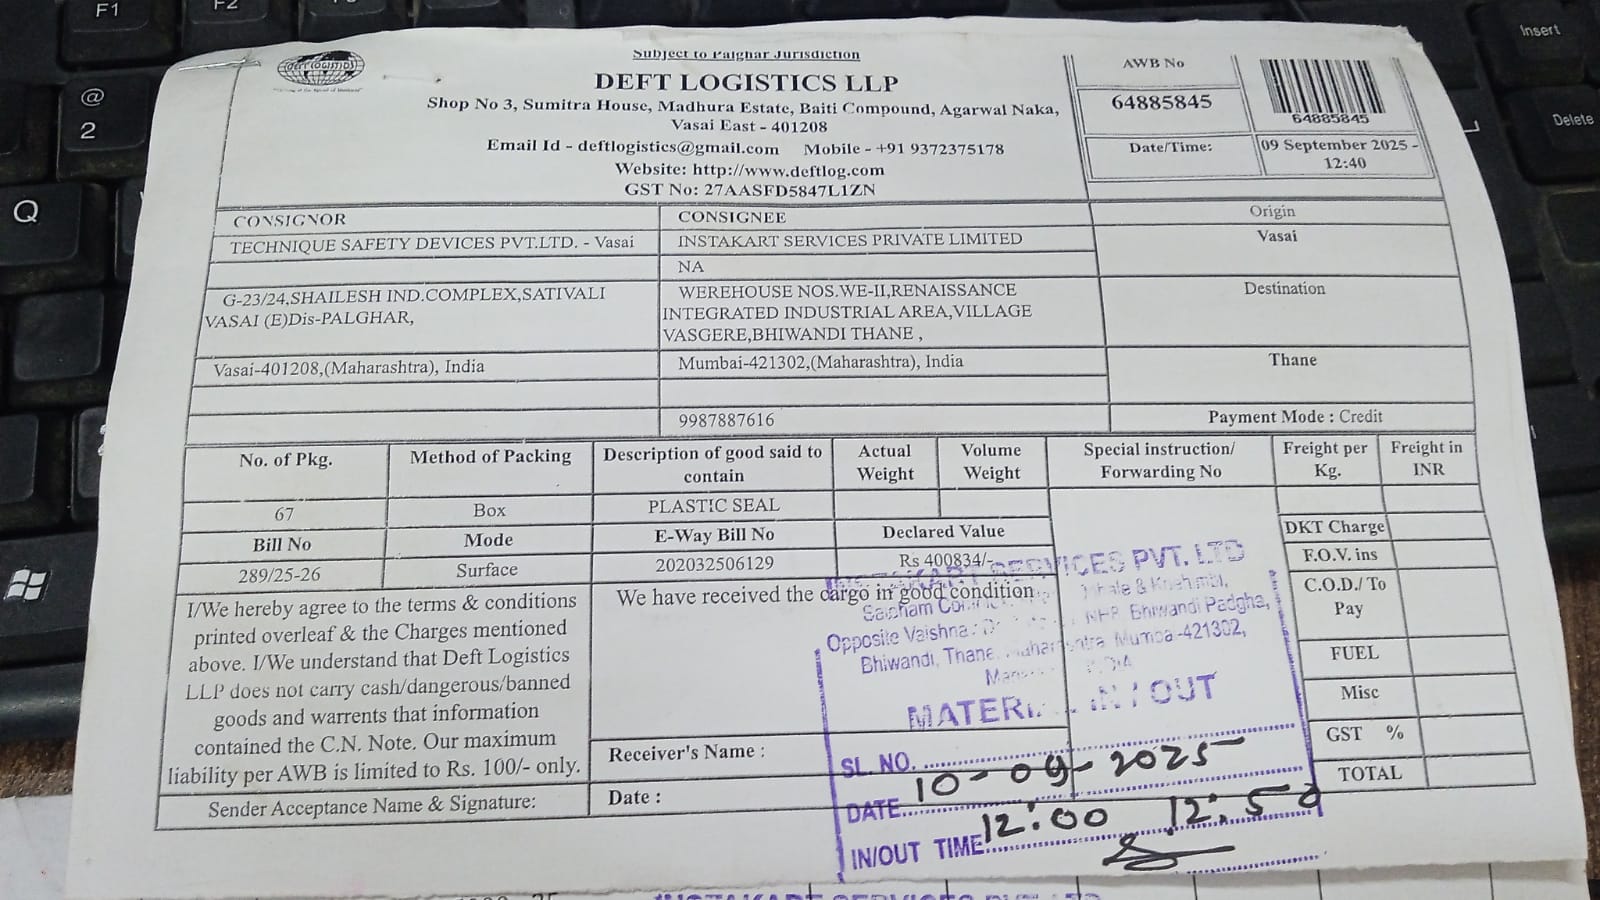 F1
F2
Insert
@
2
Delete
Q
Subject to Palghar Jurisdiction
DEFT LOGISTICS LLP
Shop No 3, Sumitra House, Madhura Estate, Baiti Compound, Agarwal Naka,
Vasai East - 401208
Email Id - deftlogistics@gmail.com Mobile - +91 9372375178
Website: http://www.deftlog.com
GST No: 27AASFD5847L1ZN
AWB No
64885845
64885845
Date/Time:
09 September 2025 -
12:40
CONSIGNOR
CONSIGNEE
Origin
TECHNIQUE SAFETY DEVICES PVT.LTD. - Vasai
INSTAKART SERVICES PRIVATE LIMITED
Vasai
NA
G-23/24,SHAILESH IND.COMPLEX,SATIVALI
VASAI (E)Dis-PALGHAR,
WEREHOUSE NOS.WE-II,RENAISSANCE
INTEGRATED INDUSTRIAL AREA,VILLAGE
VASGERE,BHIWANDI THANE ,
Destination
Vasai-401208,(Maharashtra), India
Mumbai-421302,(Maharashtra), India
Thane
9987887616
Payment Mode : Credit
No. of Pkg.
Method of Packing
Description of good said to
contain
Actual
Weight
Volume
Weight
Special instruction/
Forwarding No
Freight per
Kg.
Freight in
INR
67
Box
PLASTIC SEAL
Bill No
Mode
E-Way Bill No
Declared Value
DKT Charge
289/25-26
Surface
202032506129
Rs 400834/-
F.O.V. ins
C.O.D./ To
Pay
FUEL
Misc
GST %
TOTAL
I/We hereby agree to the terms & conditions
printed overleaf & the Charges mentioned
above. I/We understand that Deft Logistics
LLP does not carry cash/dangerous/banned
goods and warrents that information
contained the C.N. Note. Our maximum
liability per AWB is limited to Rs. 100/- only.
Sender Acceptance Name & Signature:
We have received the cargo in good condition
Receiver's Name :
Date :
INSTAKART SERVICES PVT. LTD
Opposite Vaishna NHP Bhiwandi Padgha,
Bhiwandi, Thane Mumba -421302,
MATERIAL IN / OUT
SL. NO.
DATE 10-09-2025
IN/OUT TIME 12:00 12:50